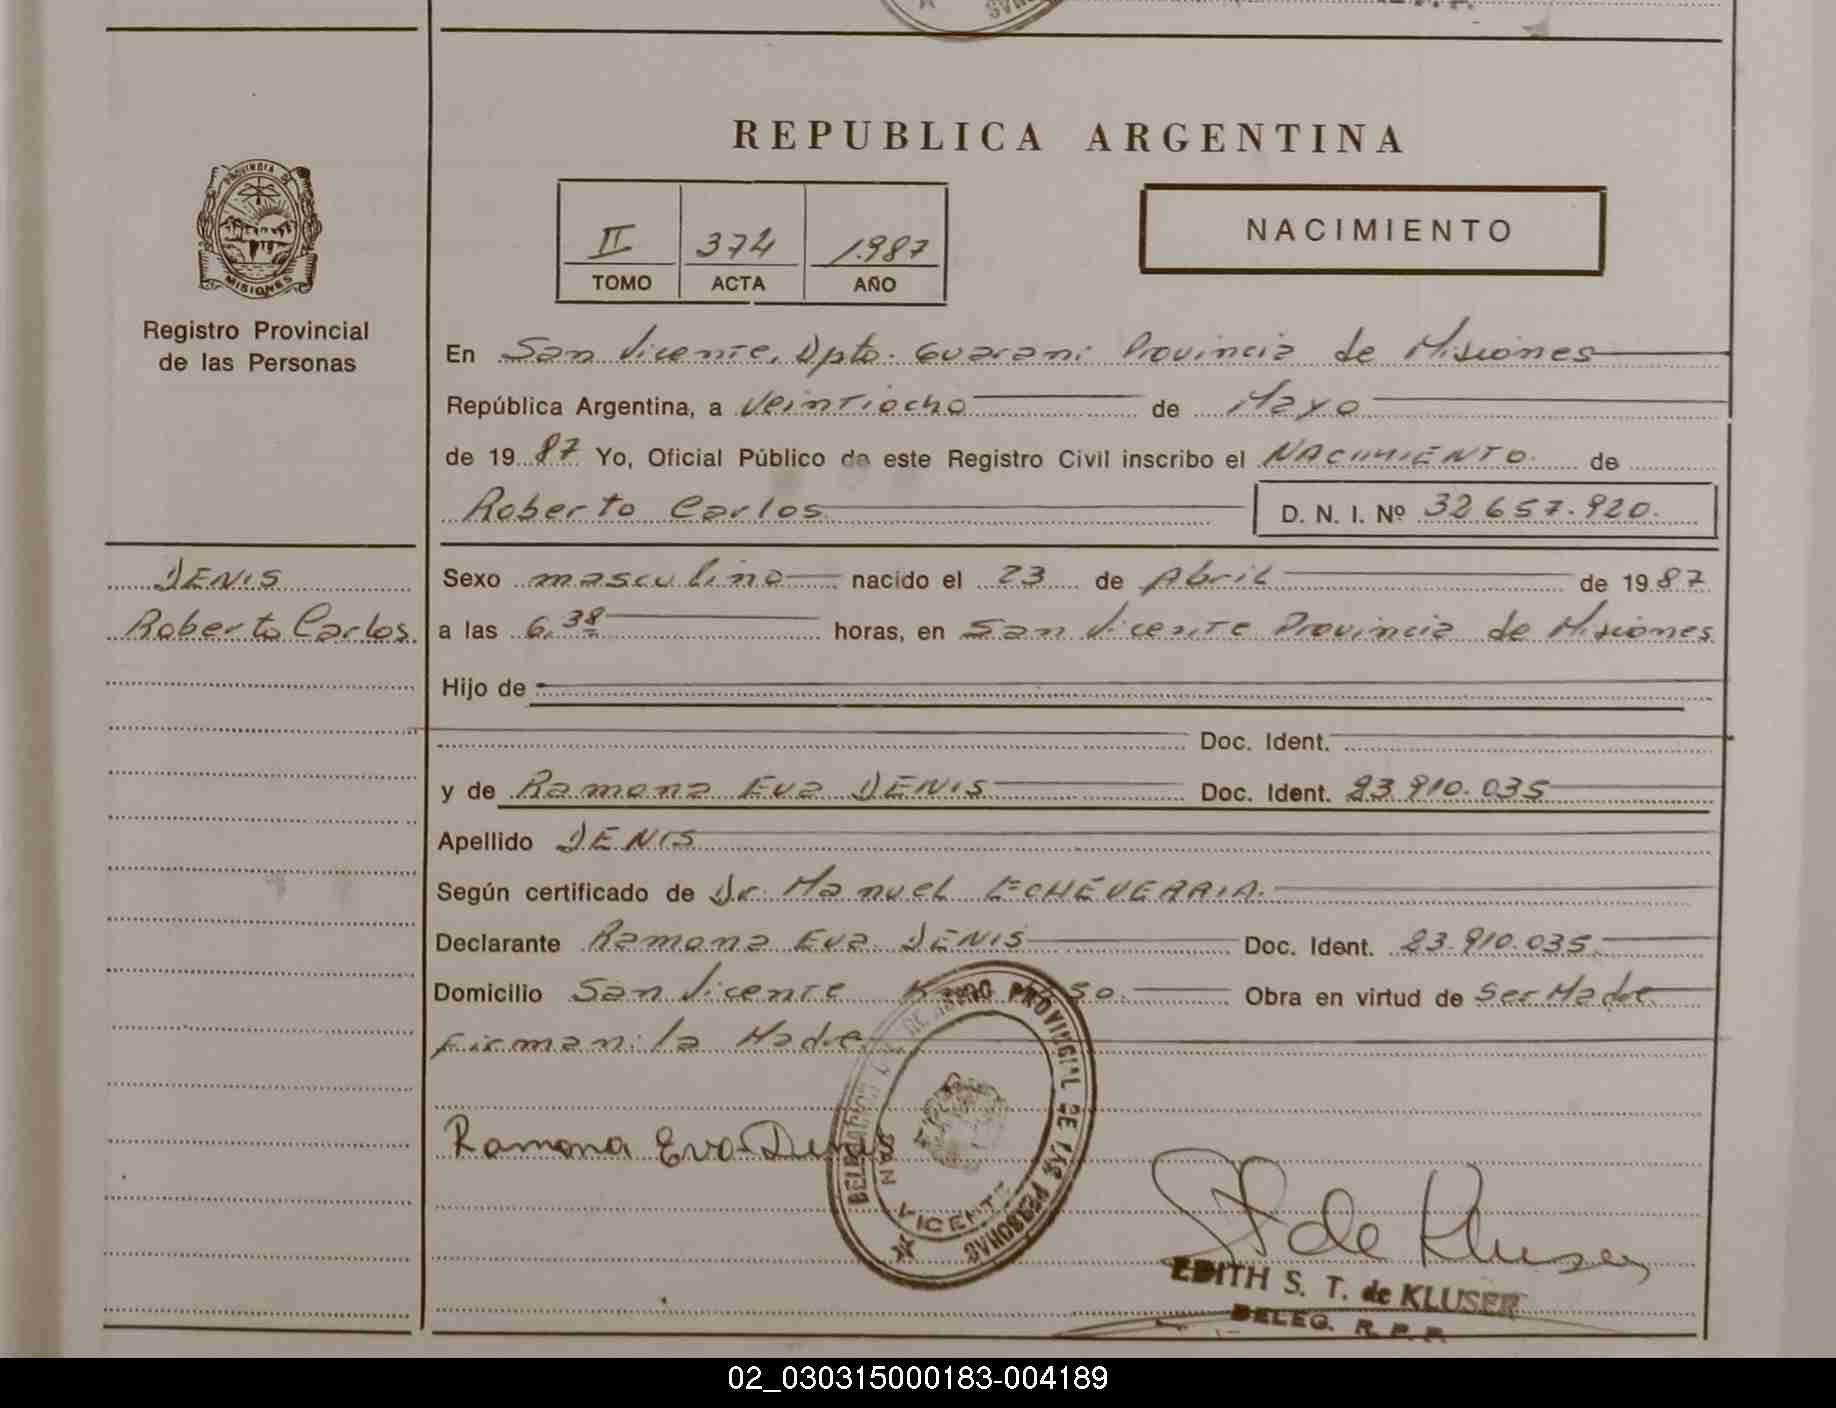 REPUBLICA ARGENTINA
PROVINCIA DE
MISIONES
Registro Provincial
de las Personas
II 374 1.987
TOMO ACTA AÑO
NACIMIENTO
En San Vicente, Dpto. Guarani Provincia de Misiones
República Argentina, a Veintiocho de Mayo
de 19 87 Yo, Oficial Público de este Registro Civil inscribo el NACIMIENTO de
Roberto Carlos D. N. I. Nº 32657.920.
DENIS
Roberto Carlos.
Sexo masculino nacido el 23 de Abril de 19 87
a las 6,38 horas, en San Vicente Provincia de Misiones
Hijo de
Doc. Ident.
y de Ramona Eva DENIS Doc. Ident. 23.910.035
Apellido DENIS
Según certificado de Dr. Manuel ECHEVERRIA.
Declarante Ramona Eva DENIS Doc. Ident. 23.910.035.
Domicilio San Vicente Obra en virtud de Ser Madre
Firman: la Madre
Ramona Eva Denis
PROVINCIAL DE LAS PERSONAS
SAN VICENTE
de Kluser
EDITH S. T. de KLUSER
DELEG. R. P. P.
02_030315000183-004189